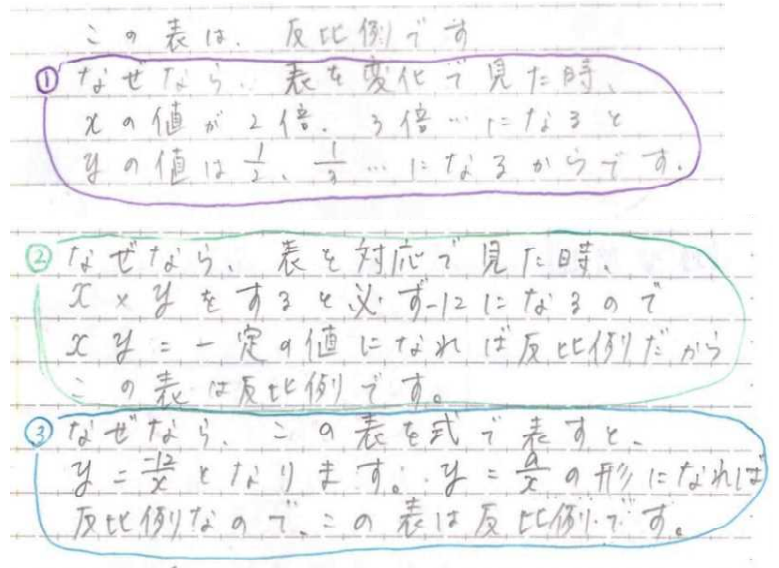 この表は、反比例です
① なぜなら、表を変化で見た時、
xの値が2倍、3倍…になると
yの値は1/2、1/3…になるからです。
② なぜなら、表を対応で見た時、
x×yをすると必ず-12になるので
xy=一定の値になれば反比例だから
この表は反比例です。
③ なぜなら、この表を式で表すと、
y=-12/xとなります。y=a/xの形になれば
反比例なので、この表は反比例です。